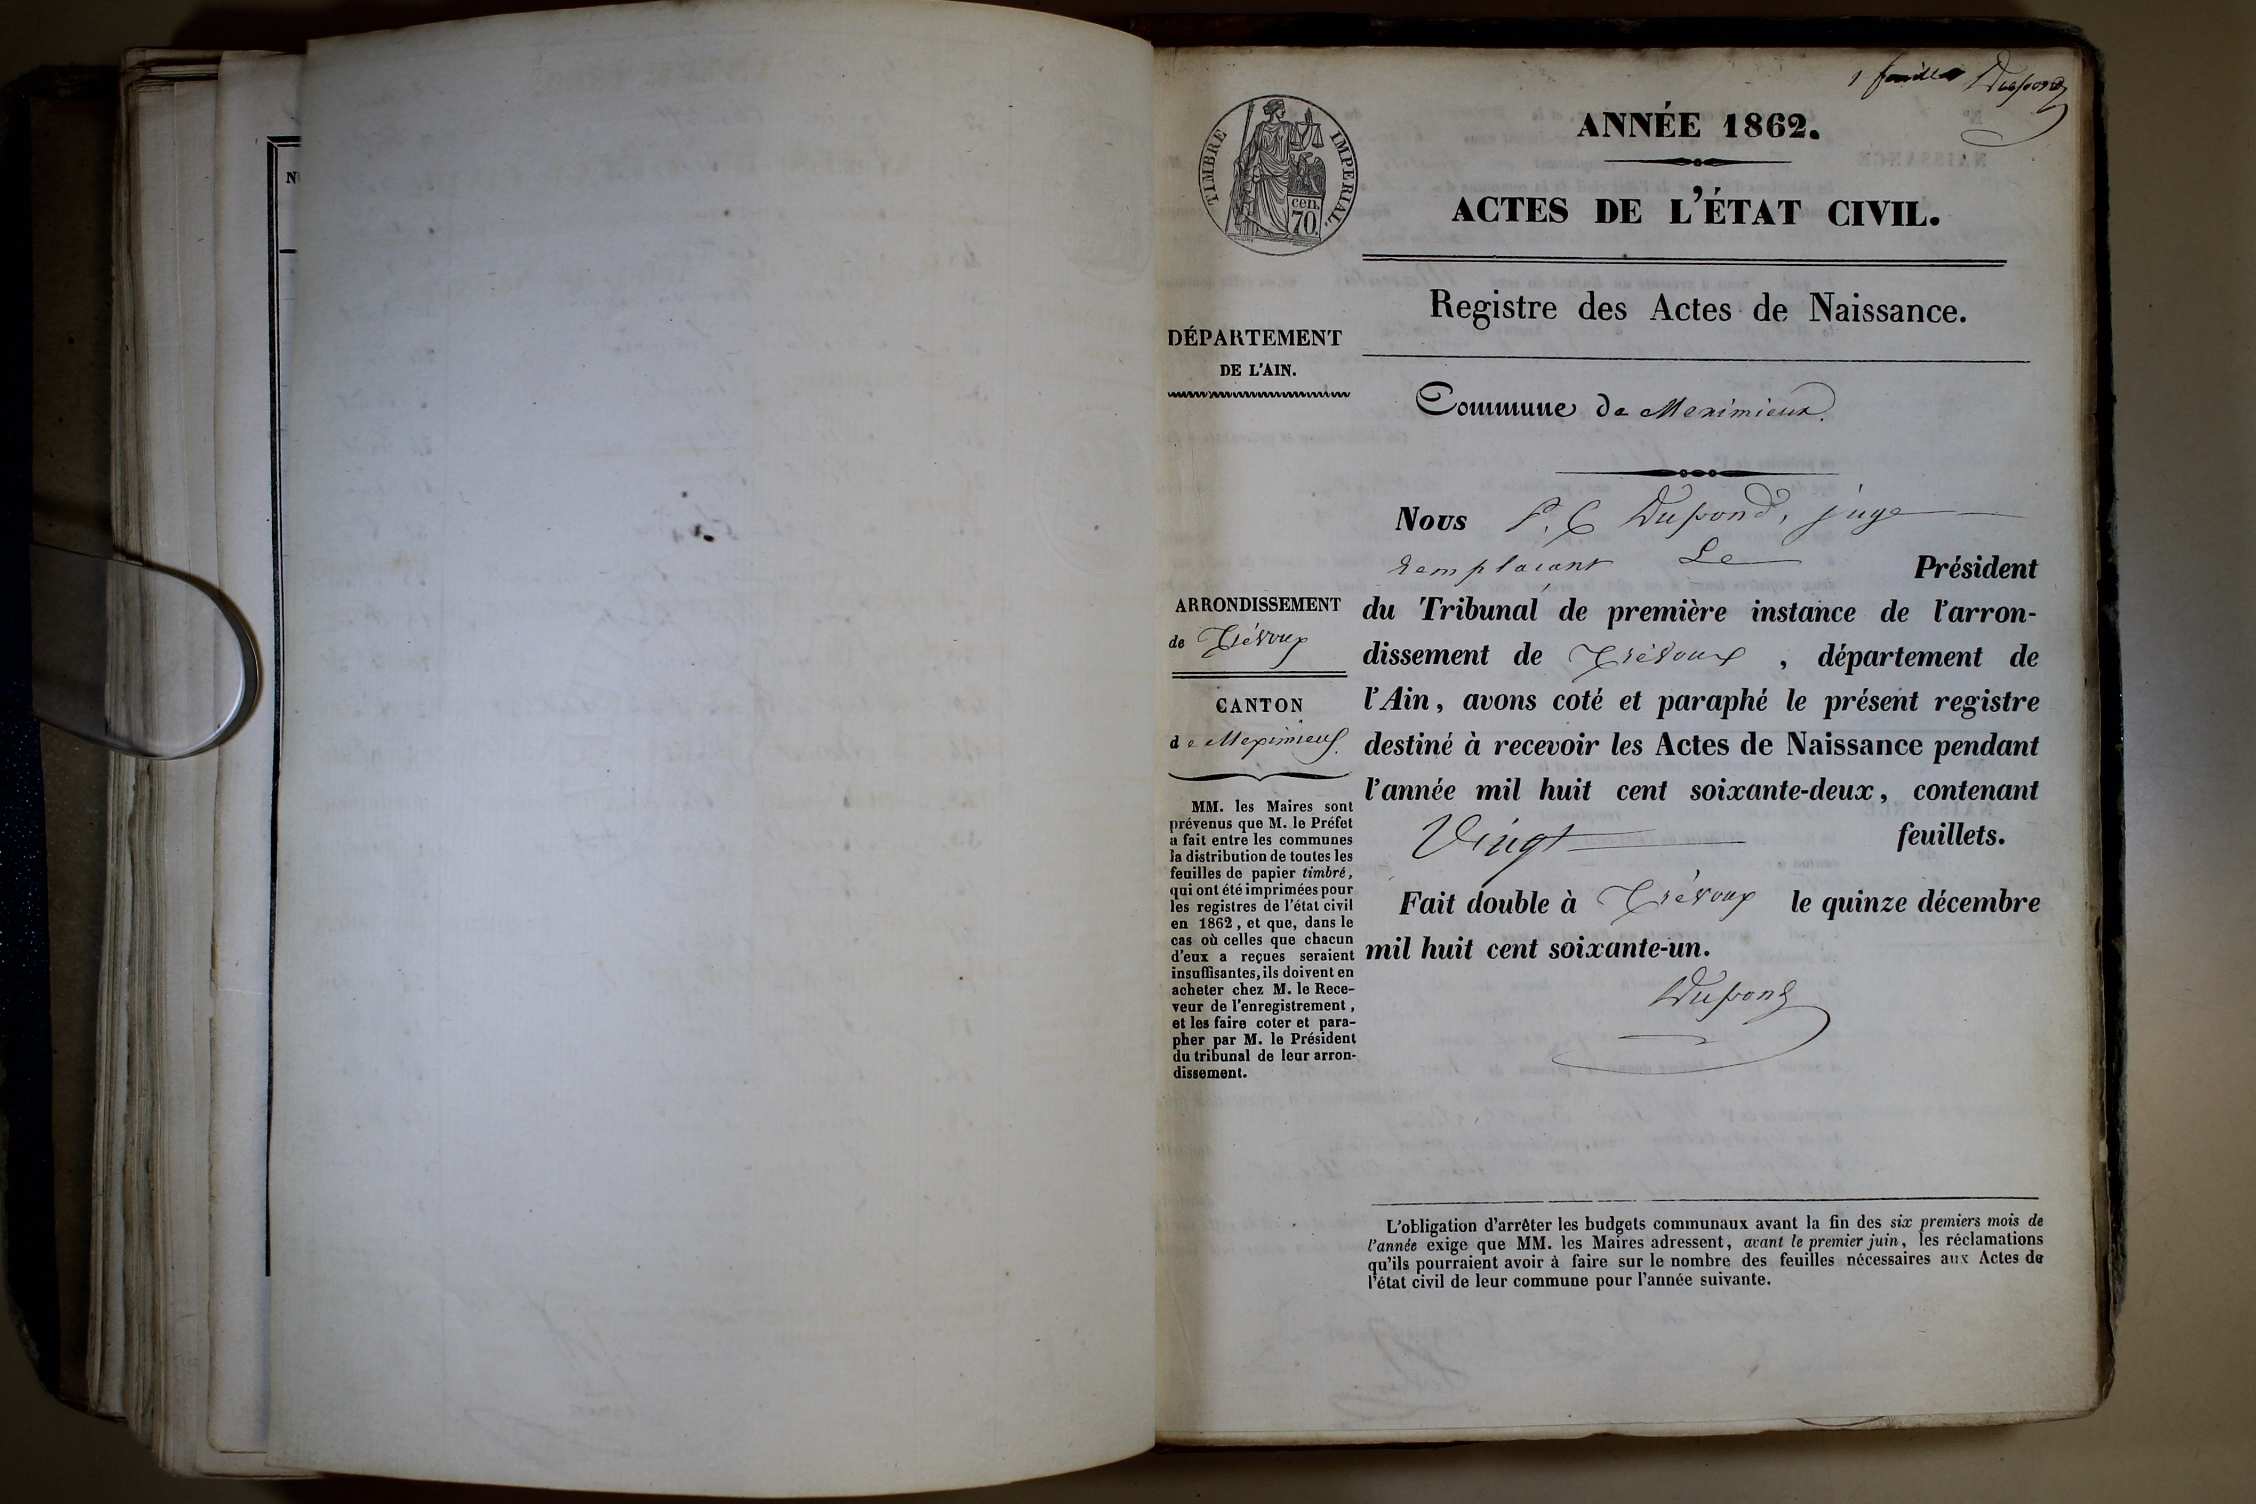 1 feuillet Dupond
ANNÉE 1862.
TIMBRE IMPERIAL.
cen.
70.
ACTES DE L'ÉTAT CIVIL.
Registre des Actes de Naissance.
DÉPARTEMENT
DE L'AIN.
Commune de Meximieux.
Nous P. C Dupond, juge
remplaçant Le Président
ARRONDISSEMENT
de Trévoux
du Tribunal de première instance de l'arron-
dissement de Trévoux , département de
l'Ain, avons coté et paraphé le présent registre
destiné à recevoir les Actes de Naissance pendant
l'année mil huit cent soixante-deux, contenant
Vingt feuillets.
Fait double à Trévoux le quinze décembre
mil huit cent soixante-un.
Dupond
CANTON
de Meximieux.
MM. les Maires sont
prévenus que M. le Préfet
a fait entre les communes
la distribution de toutes les
feuilles de papier timbré,
qui ont été imprimées pour
les registres de l'état civil
en 1862, et que, dans le
cas où celles que chacun
d'eux a reçues seraient
insuffisantes, ils doivent en
acheter chez M. le Rece-
veur de l'enregistrement,
et les faire coter et para-
pher par M. le Président
du tribunal de leur arron-
dissement.
L'obligation d'arrêter les budgets communaux avant la fin des six premiers mois de
l'année exige que MM. les Maires adressent, avant le premier juin, les réclamations
qu'ils pourraient avoir à faire sur le nombre des feuilles nécessaires aux Actes de
l'état civil de leur commune pour l'année suivante.